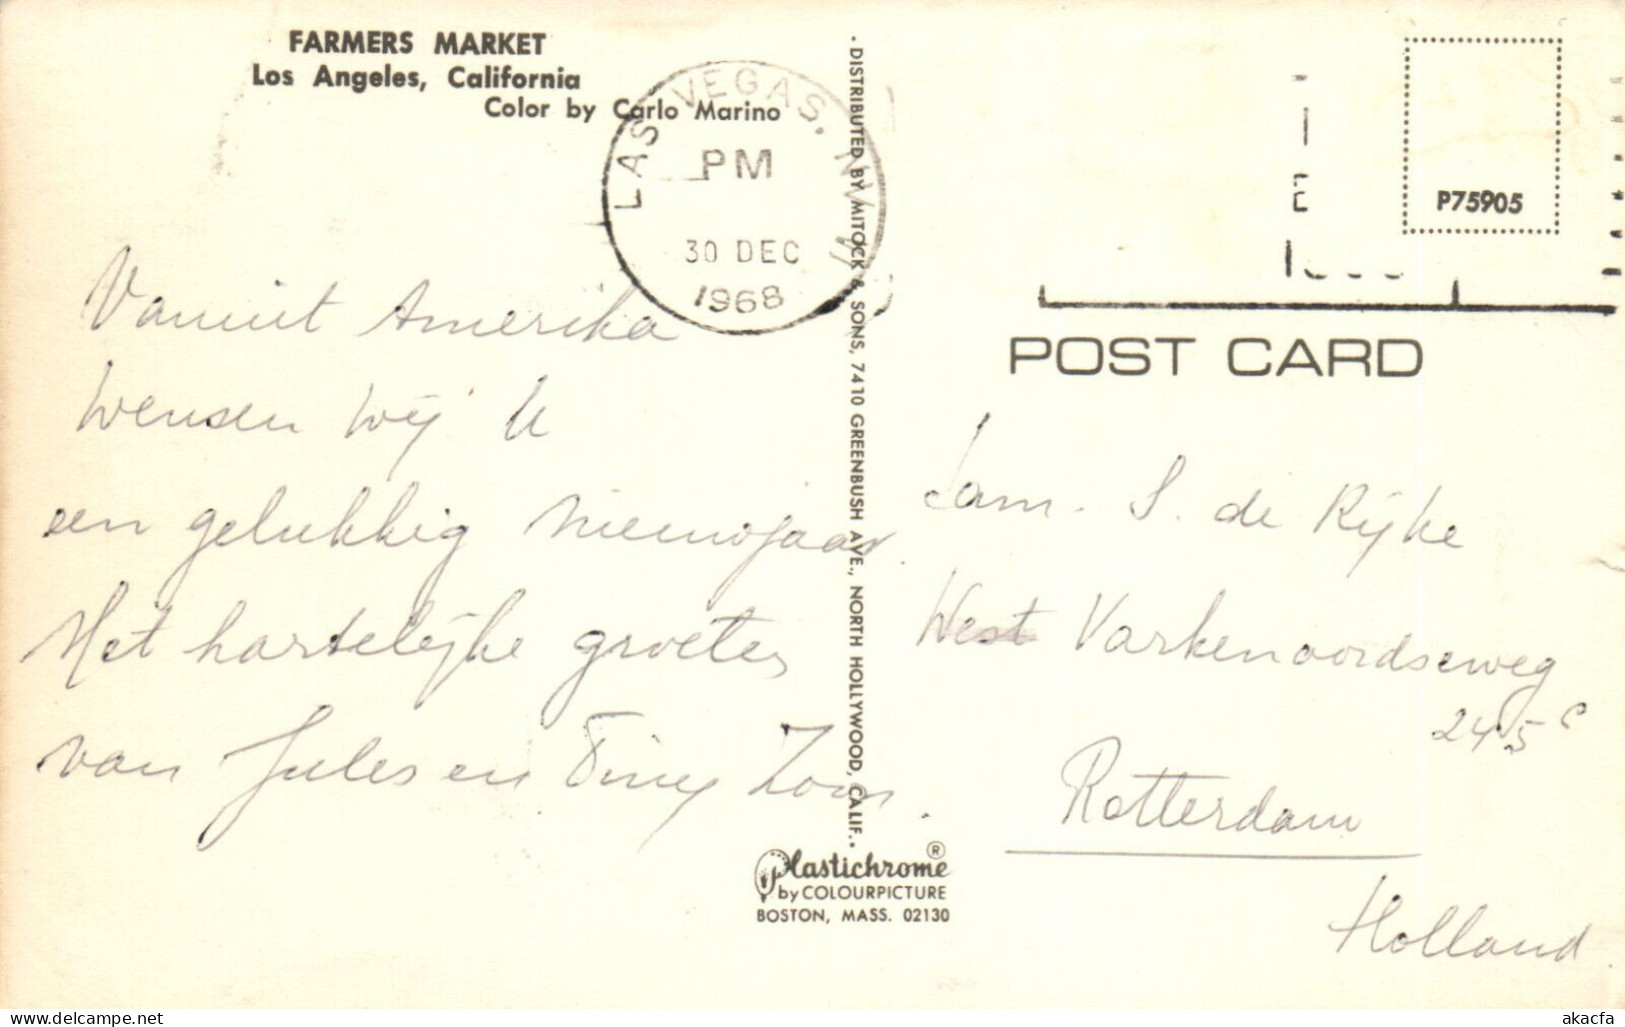 FARMERS MARKET
Los Angeles, California
Color by Carlo Marino
LAS VEGAS, NV
PM
30 DEC
1968
Vanuit Amerika
wensen wij U
een gelukkig nieuwjaar.
Met hartelijke groeten
van Jules en Tiny
DISTRIBUTED BY MITOCK & SONS, 7410 GREENBUSH AVE., NORTH HOLLYWOOD, CALIF.
Plastichrome ®
by COLOURPICTURE
BOSTON, MASS. 02130
P75905
POST CARD
Fam. S. de Rijke
West Varkenoordseweg
245 c
Rotterdam
Holland
delcampe.net
akacfa